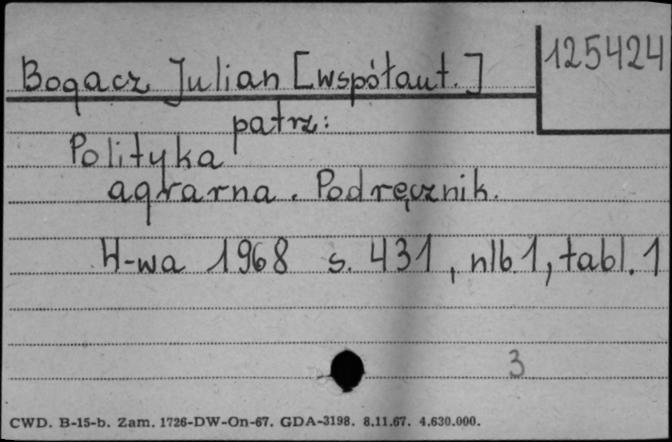 125424
Bogacz Julian [współaut.]
patrz:
Polityka
agrarna. Podręcznik.
W-wa 1968 s. 431, nlb 1, tabl. 1
3
CWD. B-15-b. Zam. 1726-DW-On-67. GDA-3198. 8.11.67. 4.630.000.